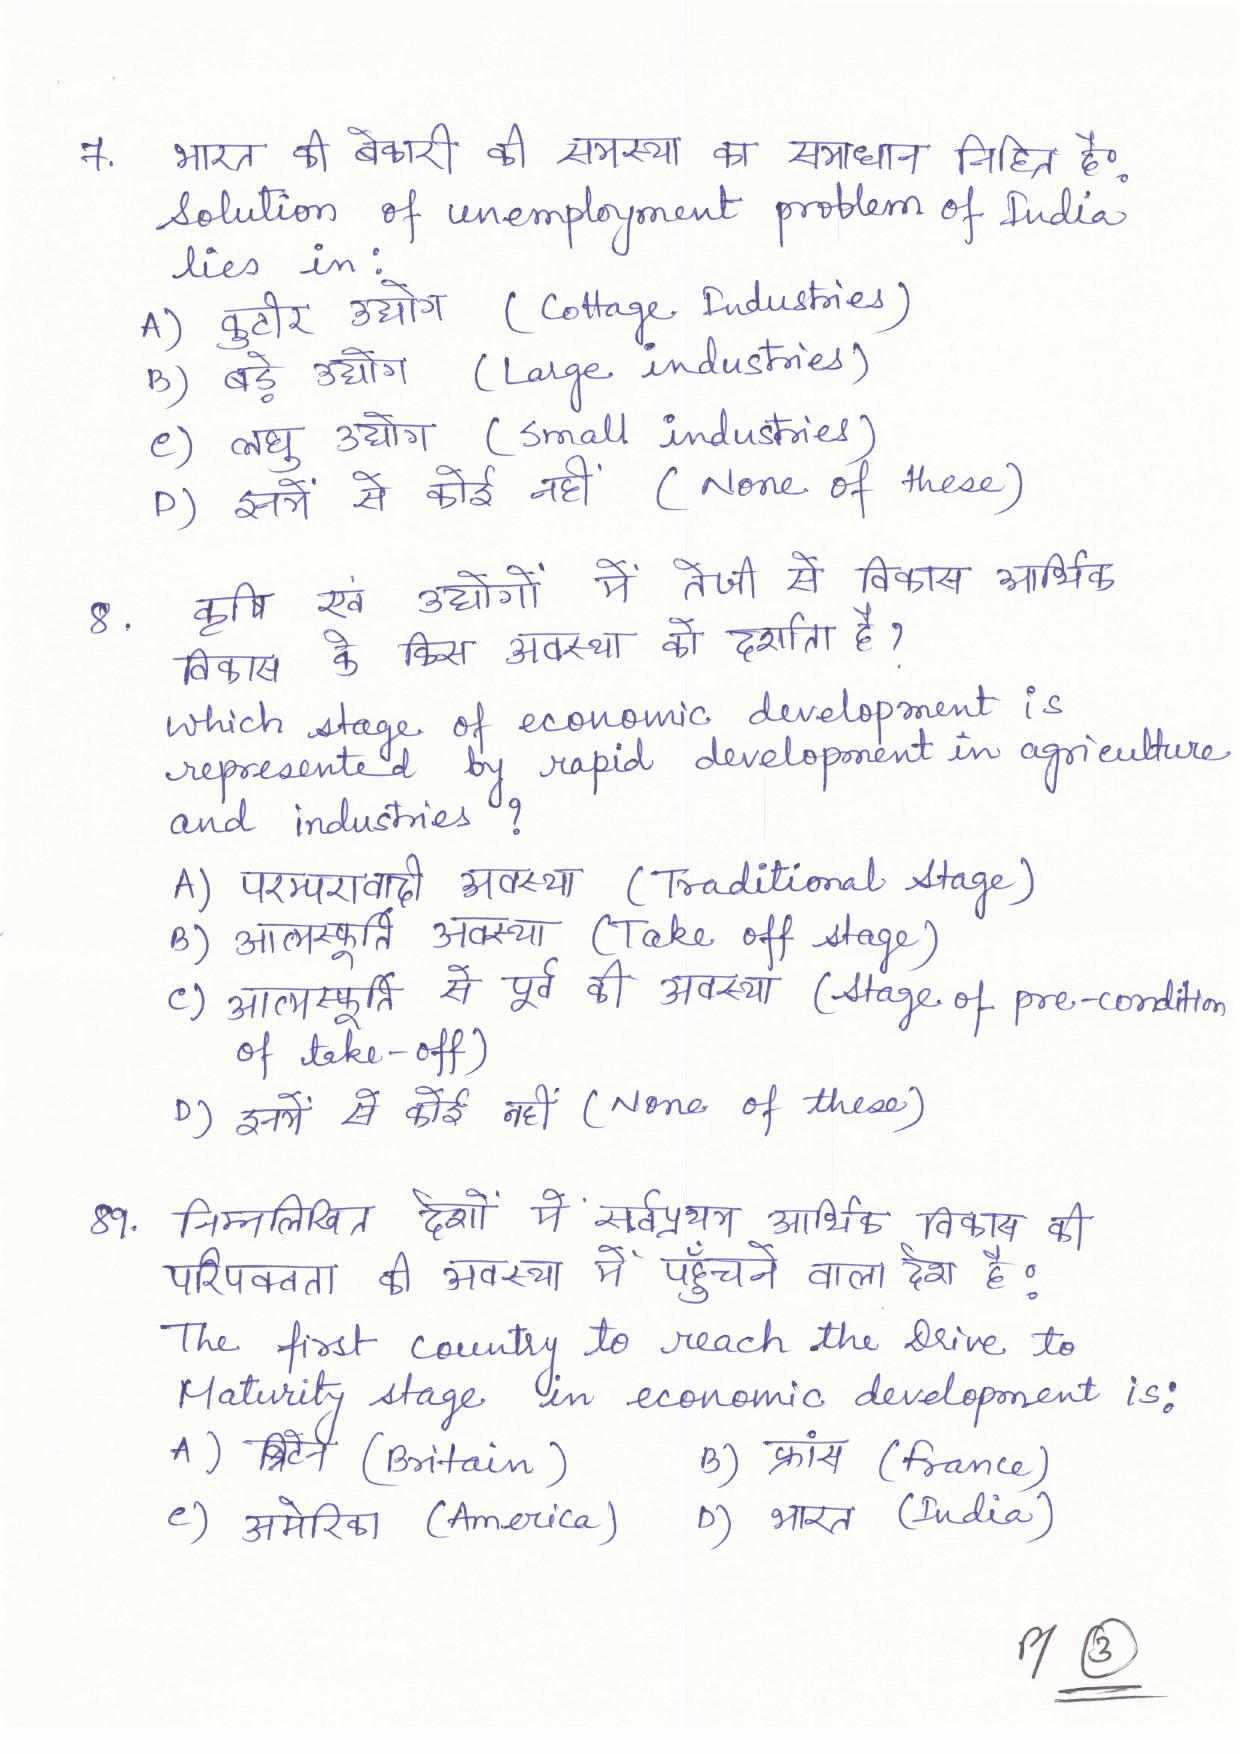 7. भारत की बेकारी की समस्या का समाधान निहित है:
Solution of unemployment problem of India
lies in:
A) कुटीर उद्योग (Cottage Industries)
B) बड़े उद्योग (Large industries)
C) लघु उद्योग (Small industries)
D) इनमें से कोई नहीं (None of these)
8. कृषि एवं उद्योगों में तेजी से विकास आर्थिक
विकास के किस अवस्था को दर्शाता है?
Which stage of economic development is
represented by rapid development in agriculture
and industries?
A) परम्परावादी अवस्था (Traditional Stage)
B) आत्मस्फूर्ति अवस्था (Take off stage)
C) आत्मस्फूर्ति से पूर्व की अवस्था (Stage of pre-condition
of take-off)
D) इनमें से कोई नहीं (None of these)
89. निम्नलिखित देशों में सर्वप्रथम आर्थिक विकास की
परिपक्वता की अवस्था में पहुँचने वाला देश है:
The first country to reach the Drive to
Maturity stage in economic development is:
A) ब्रिटेन (Britain) B) फ्रांस (France)
C) अमेरिका (America) D) भारत (India)
P/ 3